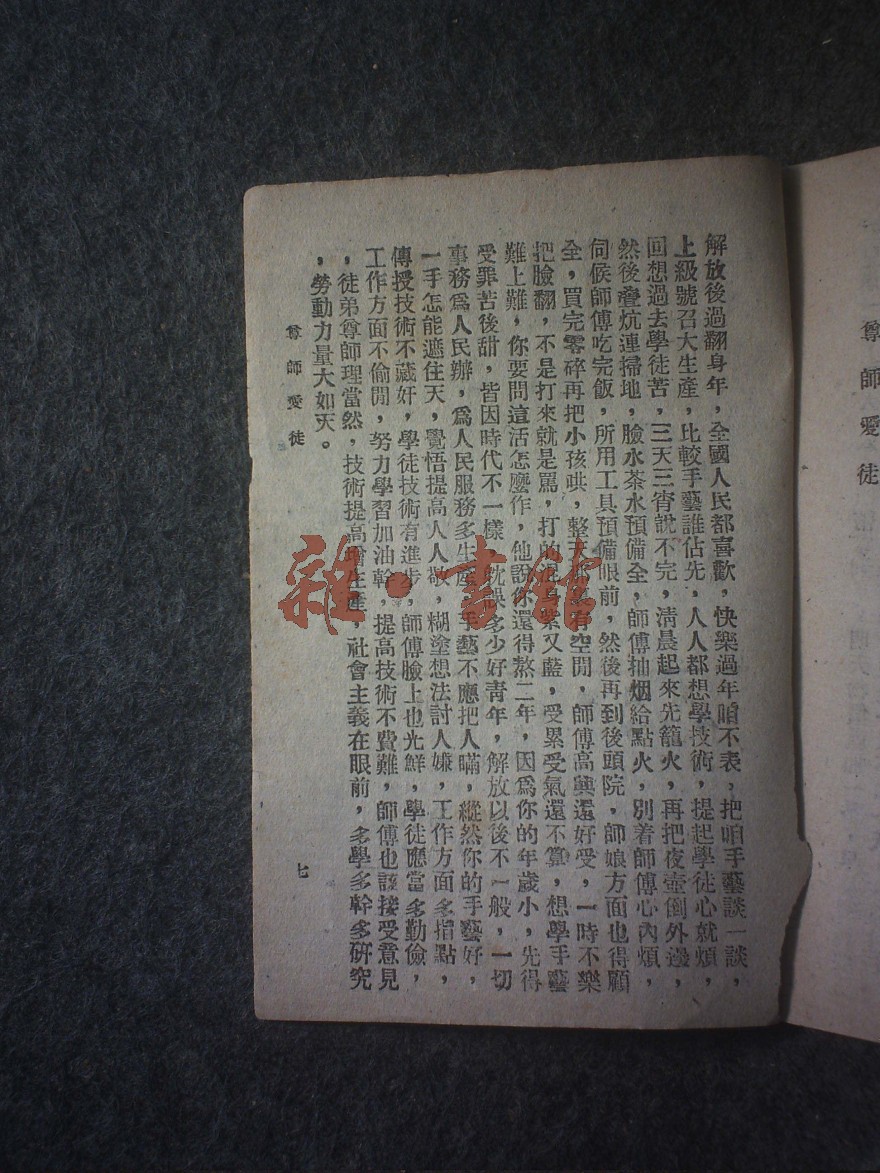 尊師愛徒
解放後過翻身年，全國人民都喜歡，快樂過年咱不表，把咱手藝談一談，
上級號召大生產，比較手藝誰佔先，人人都想學技術，提起學徒心就煩，
回想過去學徒苦，三天三宵說不完，清晨起來先籠火，再把夜壺倒外邊，
然後疊炕連掃地，臉水茶水預備全，師傅抽烟給點火，別着師傅心內煩，
伺候師傅吃完飯，所用工具預備眼前，然後再到後頭院，師娘方面也得顧
全，買完零碎再把小孩哄，整天有空閒，師傅高興還好受，一時不樂
把臉翻，不是打來就是罵，打的混身紫又藍，受累受氣還不算，想學手藝
難上難，你要問這活怎麼作，他說你還得熬二年，因為你的年歲小，先得
受罪苦後甜，皆因時代不一樣，耽誤多少好青年，解放以後不一般，一切
事務為人民辦，為人民服務多生產，手藝不應把人瞞，縱然你的手藝好，
一手怎能遮住天，覺悟提高人人敬，糊塗想法討人嫌，工作方面多指點，
傳授技術不藏奸，學徒技術有進步，師傅臉上也光鮮，學徒應當多勤儉，
工作方面不偷閒，努力學習加油幹，提高技術不費難，師傅也該接受意見
，徒弟尊師理當然，技術提高增生產，社會主義在眼前，多學多幹多研究
，勞動力量大如天。
尊師愛徒
七
雜·書館